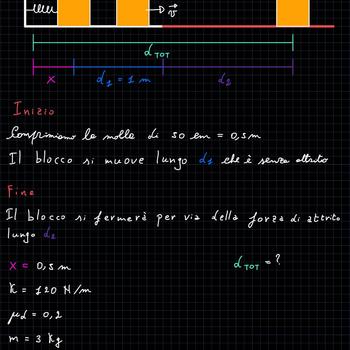 v
d TOT
x d1 = 1 m d2
Inizio
Comprimiamo la molla di 50 cm = 0,5m
Il blocco si muove lungo d1 che è senza attrito
Fine
Il blocco si fermerà per via della forza di attrito
lungo d2
x = 0,5 m d TOT = ?
K = 120 N/m
μd = 0,2
m = 3 Kg